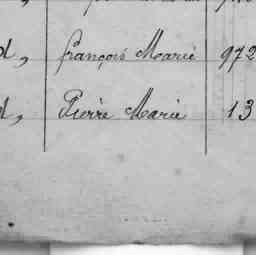 d, François Marie 972
d, Pierre Marie 13